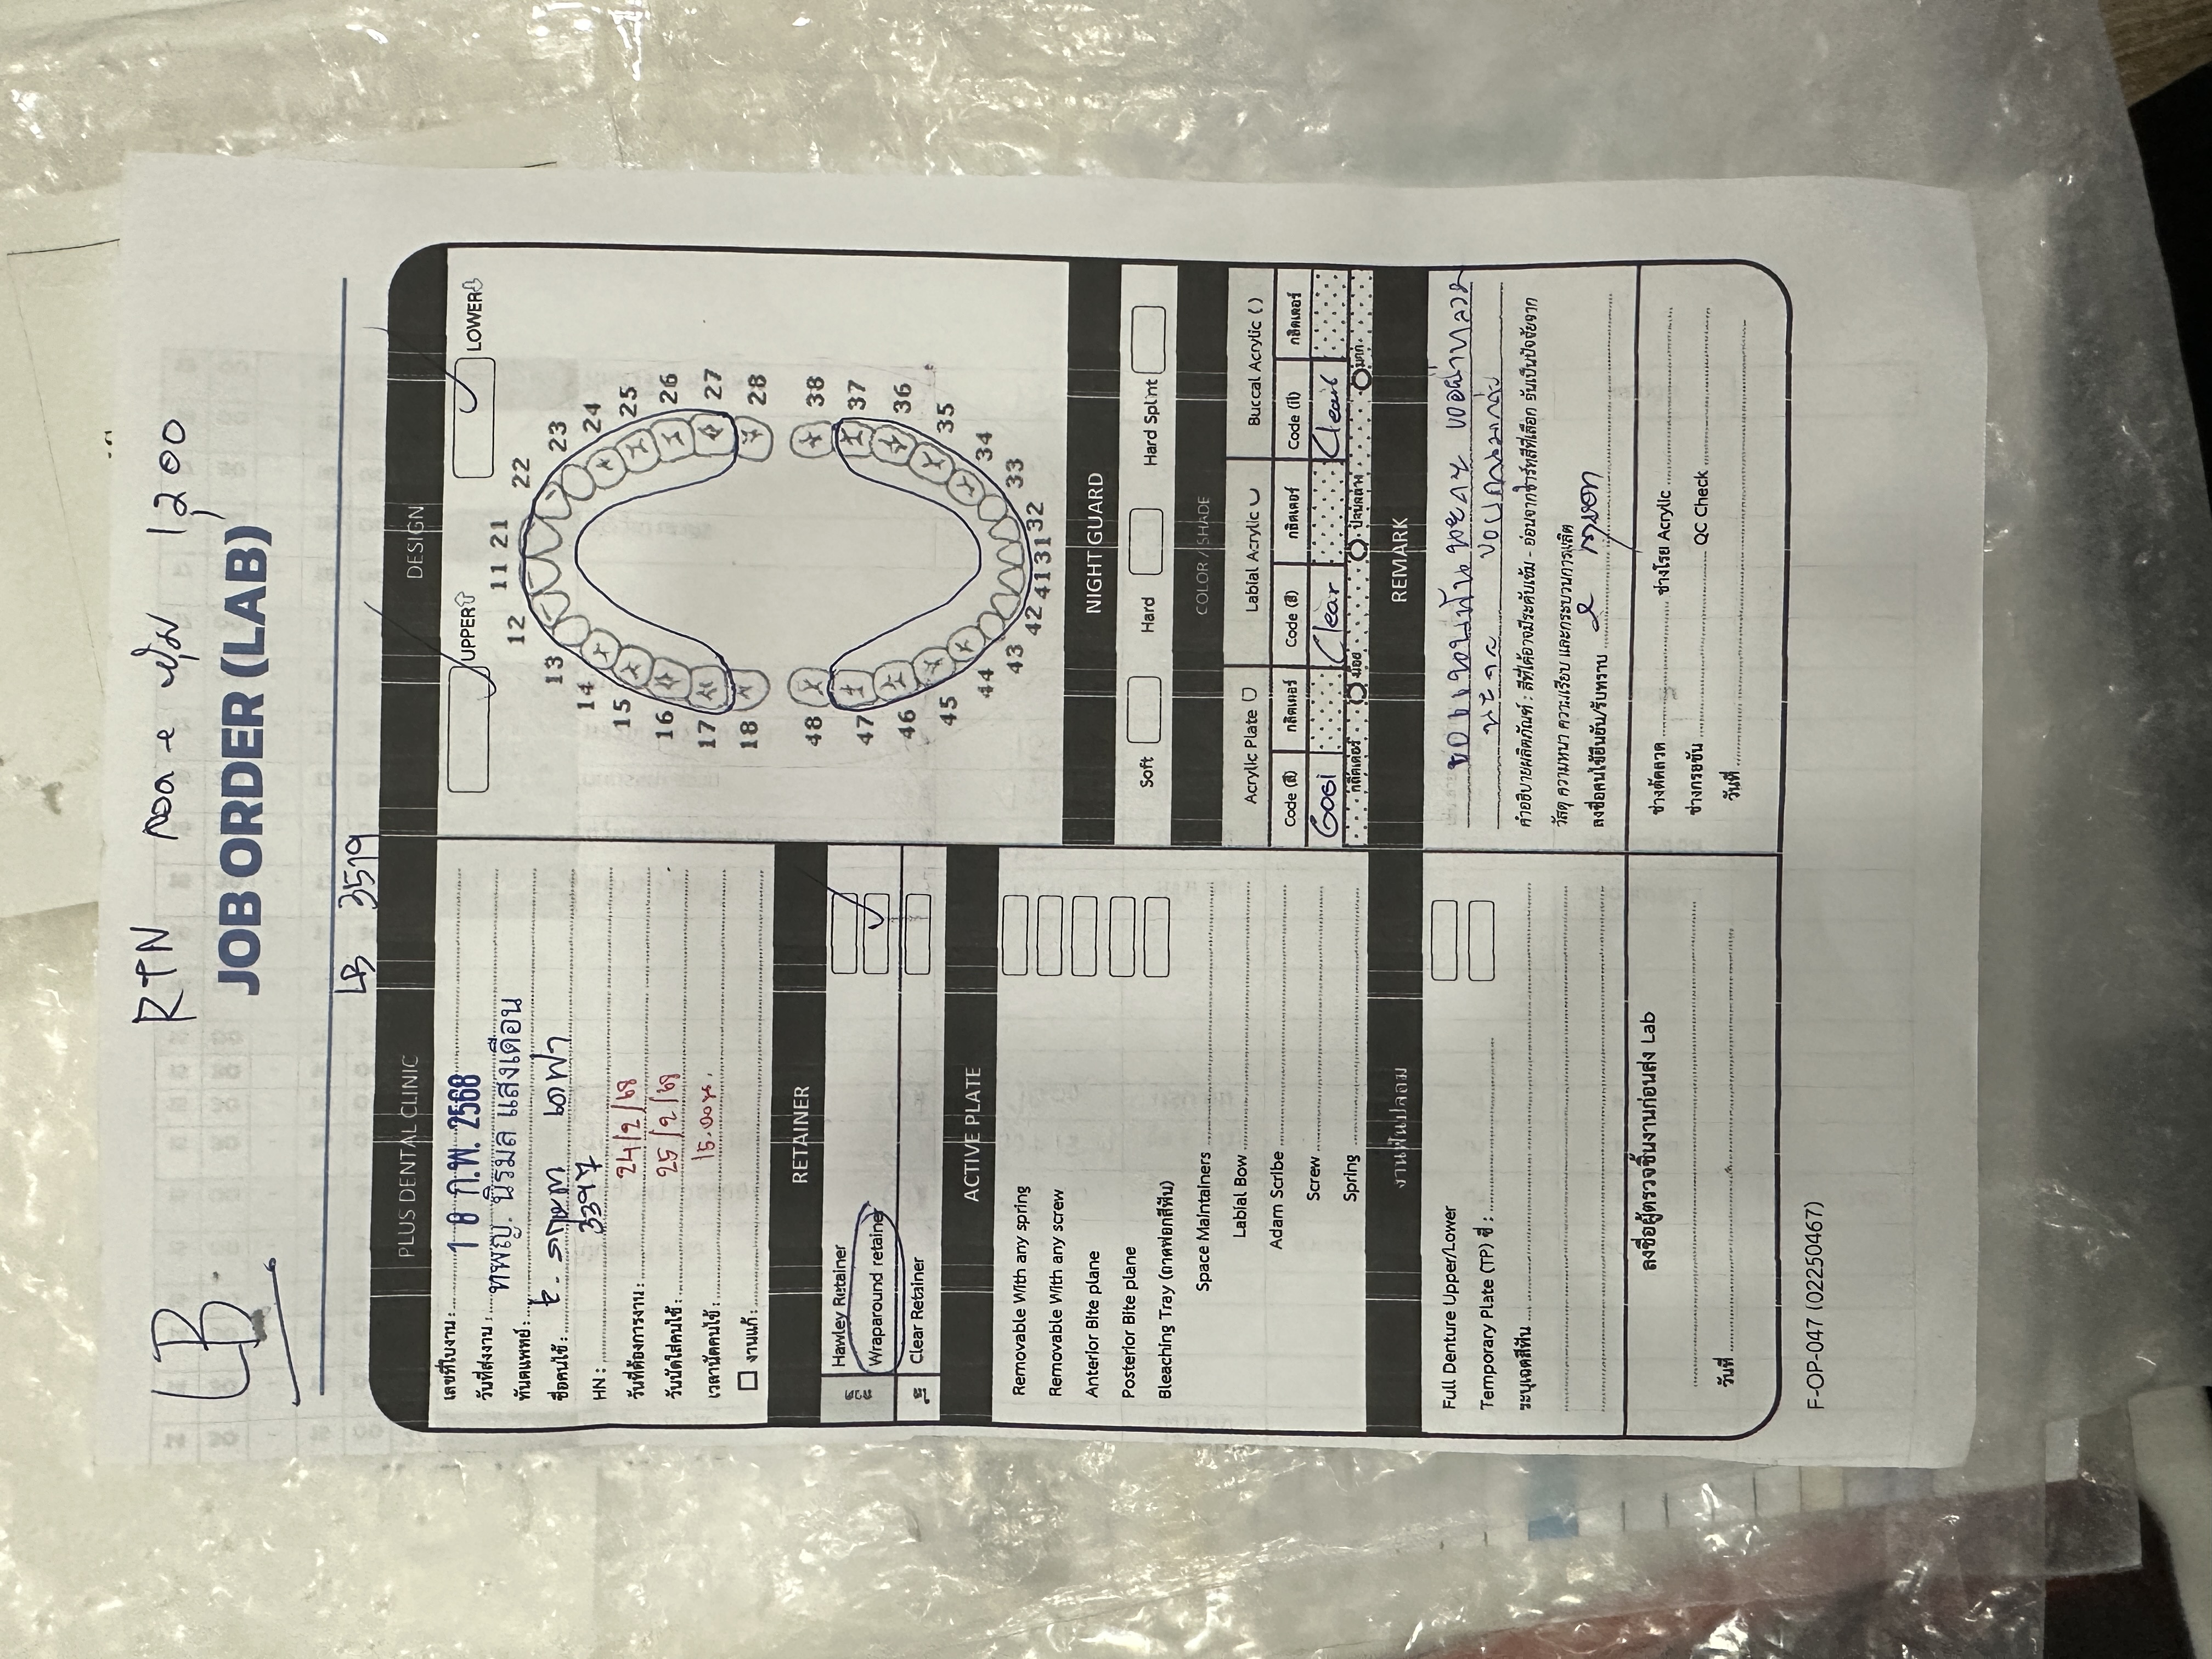 LB
RTN ลวด e หุ้ม 1,200
JOB ORDER (LAB)
LB 3519
PLUS DENTAL CLINIC
เลขที่ใบงาน :
วันที่ส่งงาน : 18 ก.พ. 2568
ทันตแพทย์ : ทพญ. นิรมล แสงเดือน
ชื่อคนไข้ :
HN : 3397
วันที่ต้องการงาน : 24/2/68
วันนัดใส่คนไข้ : 25/2/68
เวลานัดคนไข้ : 15.00น.
งานแก้ :
RETAINER
ลวด
Hawley Retainer
Wraparound retainer
ใส
Clear Retainer
ACTIVE PLATE
Removable With any spring
Removable With any screw
Anterior Bite plane
Posterior Bite plane
Bleaching Tray (ถาดฟอกสีฟัน)
Space Maintainers
Labial Bow
Adam Scribe
Screw
Spring
งานฟันปลอม
Full Denture Upper/Lower
Temporary Plate (TP) ซี่ :
ระบุเฉดสีฟัน
ลงชื่อผู้ตรวจชิ้นงานก่อนส่ง Lab
วันที่
DESIGN
UPPER LOWER
11 21
12 22
13 23
14 24
15 25
16 26
17 27
18 28
48 38
47 37
46 36
45 35
44 34
43 33
42 41 31 32
NIGHT GUARD
Soft Hard Hard Splint
COLOR / SHADE
Acrylic Plate Labial Acrylic Buccal Acrylic ( )
Code (สี) กลิตเตอร์ Code (สี) กลิตเตอร์ Code (สี) กลิตเตอร์
G061 Clear Clear
กลิตเตอร์ น้อย ปานกลาง มาก
REMARK
คำอธิบายผลิตภัณฑ์ : สีที่ได้อาจมีระดับเข้ม - อ่อนจากชาร์ทสีที่เลือก อันเป็นปัจจัยจาก
วัสดุ ความหนา ความเรียบ และกระบวนการผลิต
ลงชื่อคนไข้ยืนยัน/รับทราบ
ช่างดัดลวด ช่างโรย Acrylic
ช่างกรอขัน QC Check
วันที่
F-OP-047 (02250467)